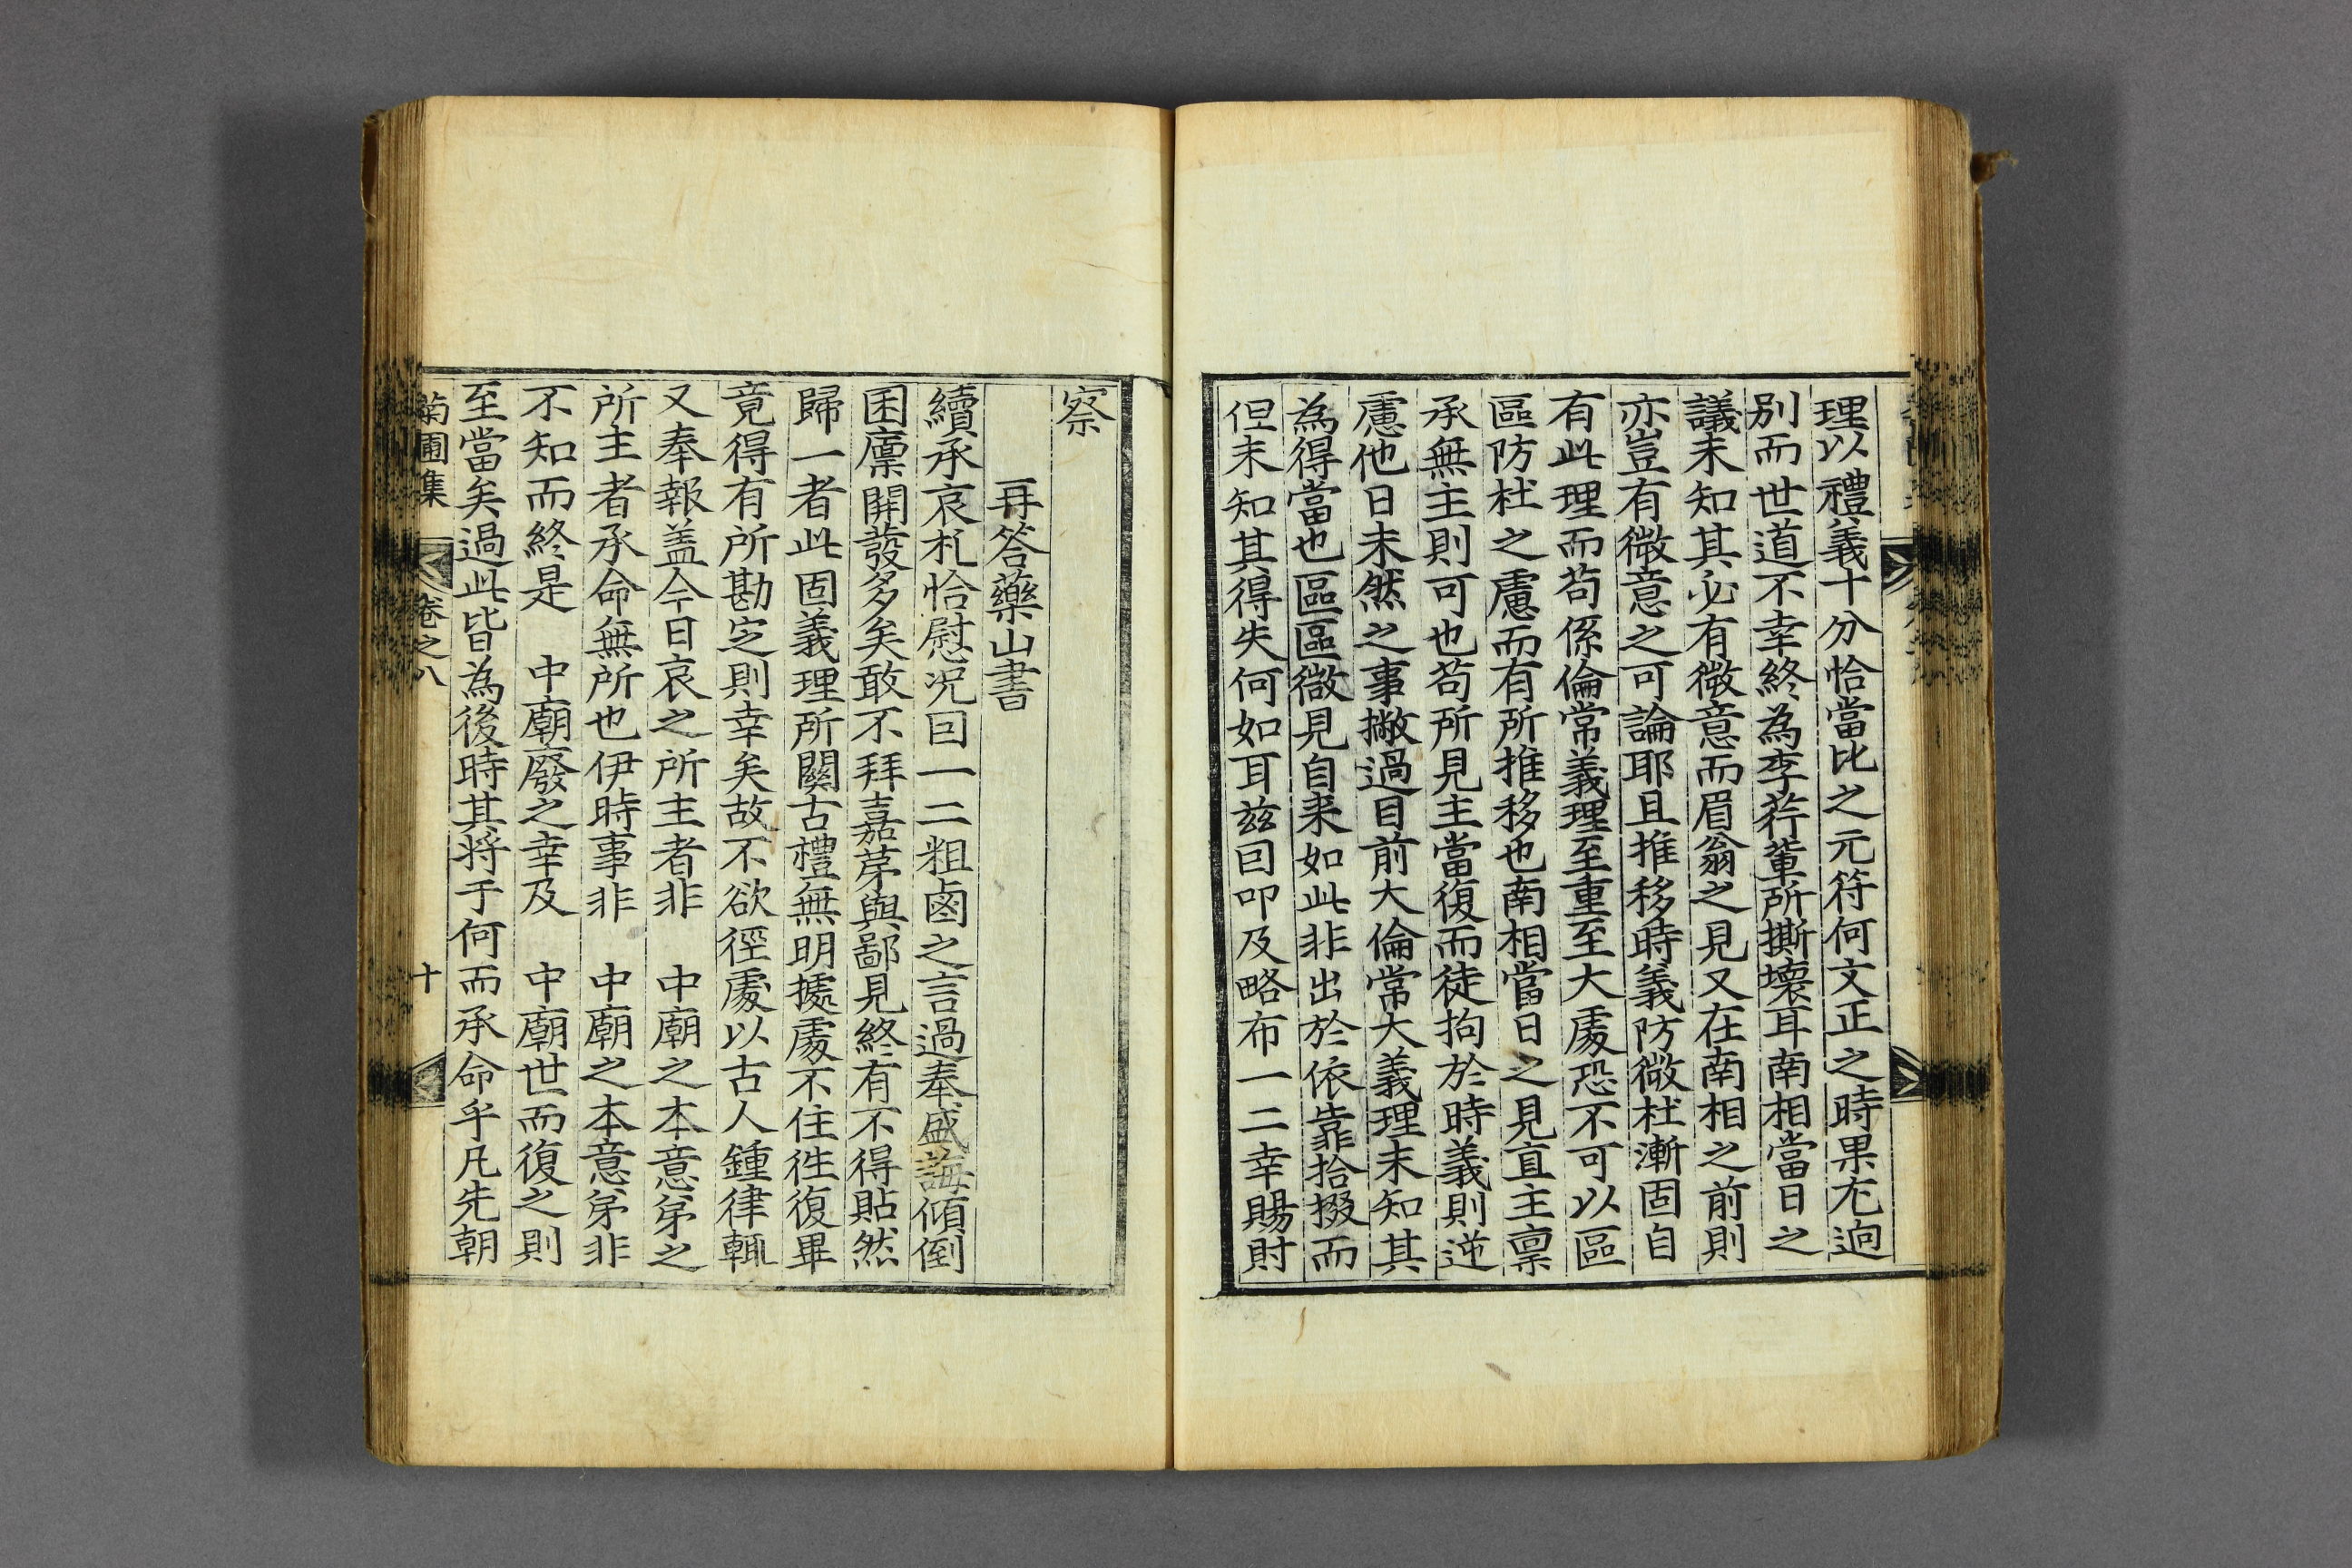 理以禮義十分恰當比之元符何文正之時果尤逈
別而世道不幸終為李荇軰所撕壞耳南相當日之
議未知其必有微意而眉翁之見又在南相之前則
亦豈有微意之可論耶且推移時義防微杜漸固自
有此理而苟係倫常義理至重至大處恐不可以區
區防杜之慮而有所推移也南相當日之見直主稟
承無主則可也苟所見主當復而徒拘於時義則逆
慮他日未然之事撇過目前大倫常大義理未知其
為得當也區區微見自来如此非出於依靠拾掇而
但未知其得失何如耳玆囙叩及略布一二幸賜財
察
再答藥山書
續承哀札恰慰况囙一二粗鹵之言過奉盛誨傾倒
囷廩開發多矣敢不拜嘉苐與鄙見終有不得貼然
歸一者此固義理所關古禮無明據處不住徃復畢
竟得有所勘定則幸矣故不欲徑處以古人鍾律輒
又奉報盖今日哀之所主者非 中廟之本意苐之
所主者承命無所也伊時事非 中廟之本意苐非
不知而終是 中廟廢之幸及 中廟世而復之則
至當矣過此皆為後時其将于何而承命乎凡先朝
菊圃集 卷之八 十